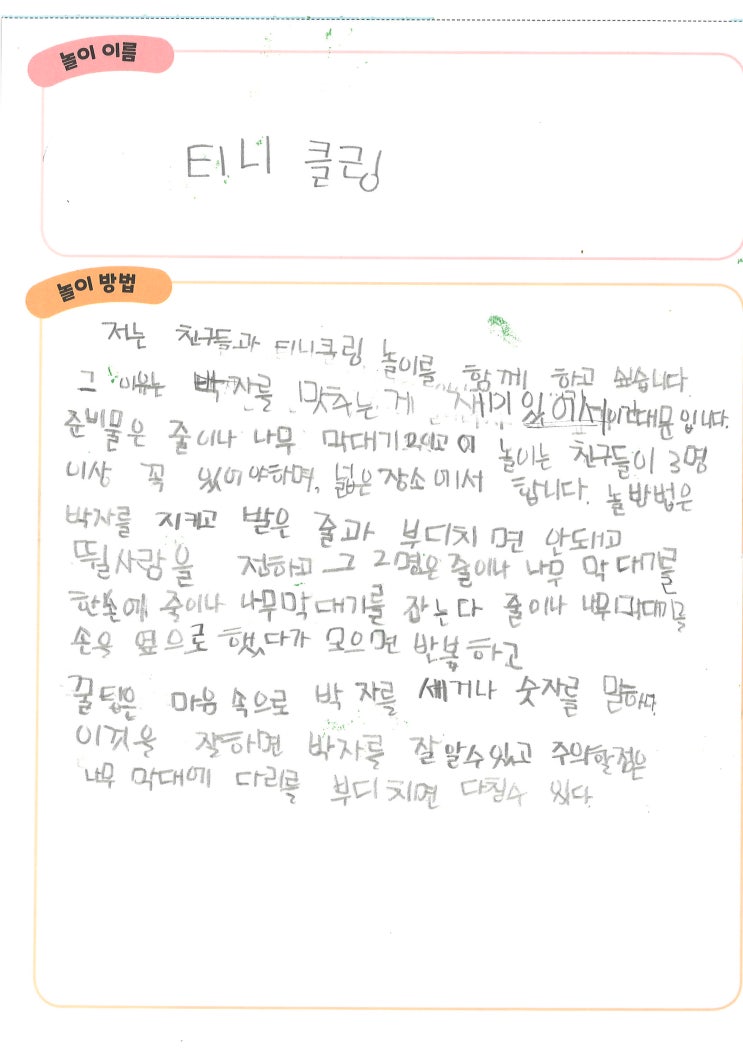 놀이 이름
티니 클링
놀이 방법
저는 친구들과 티니클링 놀이를 함께 하고 싶습니다
그 이유는 박자를 맞추는게 재미 있어서이기 때문입니다.
준비물은 줄이나 나무 막대기 이고 이 놀이는 친구들이 3명
이상 꼭 있어야하며, 넓은 장소에서 합니다. 놀 방법은
박자를 지키고 발은 줄과 부디치면 안돼고
뛸사람을 정하고 그 2명은 줄이나 나무 막대기를
한손에 줄이나 나무막대기를 잡는다 줄이나 나무막대기를
손을 옆으로 했다가 모으면 반복하고
꿀팁은 마음 속으로 박자를 세거나 숫자를 말한다
이것을 잘하면 박자를 잘 알수있고 주의할점은
나무 막대에 다리를 부디치면 다칠수 있다